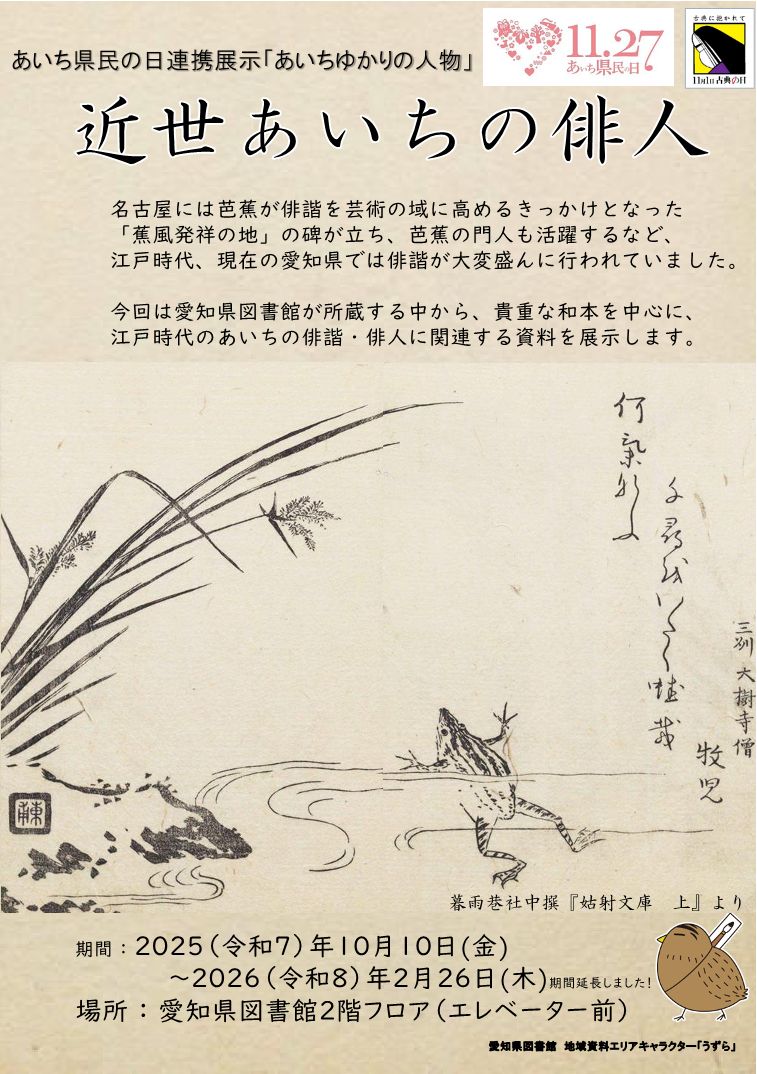 あいち県民の日連携展示「あいちゆかりの人物」
11.27
あいち県民の日
古典に抱かれて
11月1日古典の日
近世あいちの俳人
名古屋には芭蕉が俳諧を芸術の域に高めるきっかけとなった
「蕉風発祥の地」の碑が立ち、芭蕉の門人も活躍するなど、
江戸時代、現在の愛知県では俳諧が大変盛んに行われていました。
今回は愛知県図書館が所蔵する中から、貴重な和本を中心に、
江戸時代のあいちの俳諧・俳人に関連する資料を展示します。
三州 大樹寺僧
牧児
暮雨巷社中撰『姑射文庫 上』より
期間：2025（令和7）年10月10日(金)
～2026（令和8）年2月26日(木)期間延長しました！
場所：愛知県図書館2階フロア（エレベーター前）
愛知県図書館 地域資料エリアキャラクター「うずら」